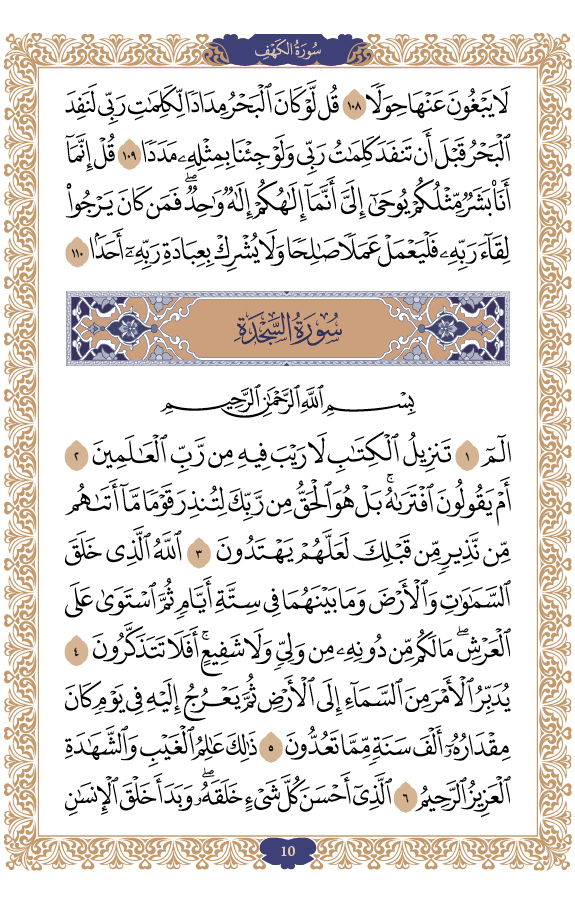 سُورَةُ الكَهْفِ
لَا يَبْغُونَ عَنْهَا حِوَلًا ١٠٨ قُل لَّوْ كَانَ ٱلْبَحْرُ مِدَادًا لِّكَلِمَٰتِ رَبِّى لَنَفِدَ
ٱلْبَحْرُ قَبْلَ أَن تَنفَدَ كَلِمَٰتُ رَبِّى وَلَوْ جِئْنَا بِمِثْلِهِۦ مَدَدًا ١٠٩ قُلْ إِنَّمَآ
أَنَا۠ بَشَرٌ مِّثْلُكُمْ يُوحَىٰٓ إِلَىَّ أَنَّمَآ إِلَٰهُكُمْ إِلَٰهٌ وَٰحِدٌ ۖ فَمَن كَانَ يَرْجُوا۟
لِقَآءَ رَبِّهِۦ فَلْيَعْمَلْ عَمَلًا صَٰلِحًا وَلَا يُشْرِكْ بِعِبَادَةِ رَبِّهِۦٓ أَحَدًۢا ١١٠
سُورَةُ السَّجْدَةِ
بِسْمِ ٱللَّهِ ٱلرَّحْمَٰنِ ٱلرَّحِيمِ
الٓمٓ ١ تَنزِيلُ ٱلْكِتَٰبِ لَا رَيْبَ فِيهِ مِن رَّبِّ ٱلْعَٰلَمِينَ ٢
أَمْ يَقُولُونَ ٱفْتَرَىٰهُ ۚ بَلْ هُوَ ٱلْحَقُّ مِن رَّبِّكَ لِتُنذِرَ قَوْمًا مَّآ أَتَىٰهُم
مِّن نَّذِيرٍ مِّن قَبْلِكَ لَعَلَّهُمْ يَهْتَدُونَ ٣ ٱللَّهُ ٱلَّذِى خَلَقَ
ٱلسَّمَٰوَٰتِ وَٱلْأَرْضَ وَمَا بَيْنَهُمَا فِى سِتَّةِ أَيَّامٍ ثُمَّ ٱسْتَوَىٰ عَلَى
ٱلْعَرْشِ ۖ مَا لَكُم مِّن دُونِهِۦ مِن وَلِىٍّ وَلَا شَفِيعٍ ۚ أَفَلَا تَتَذَكَّرُونَ ٤
يُدَبِّرُ ٱلْأَمْرَ مِنَ ٱلسَّمَآءِ إِلَى ٱلْأَرْضِ ثُمَّ يَعْرُجُ إِلَيْهِ فِى يَوْمٍ كَانَ
مِقْدَارُهُۥٓ أَلْفَ سَنَةٍ مِّمَّا تَعُدُّونَ ٥ ذَٰلِكَ عَٰلِمُ ٱلْغَيْبِ وَٱلشَّهَٰدَةِ
ٱلْعَزِيزُ ٱلرَّحِيمُ ٦ ٱلَّذِىٓ أَحْسَنَ كُلَّ شَىْءٍ خَلَقَهُۥ ۖ وَبَدَأَ خَلْقَ ٱلْإِنسَٰنِ
10